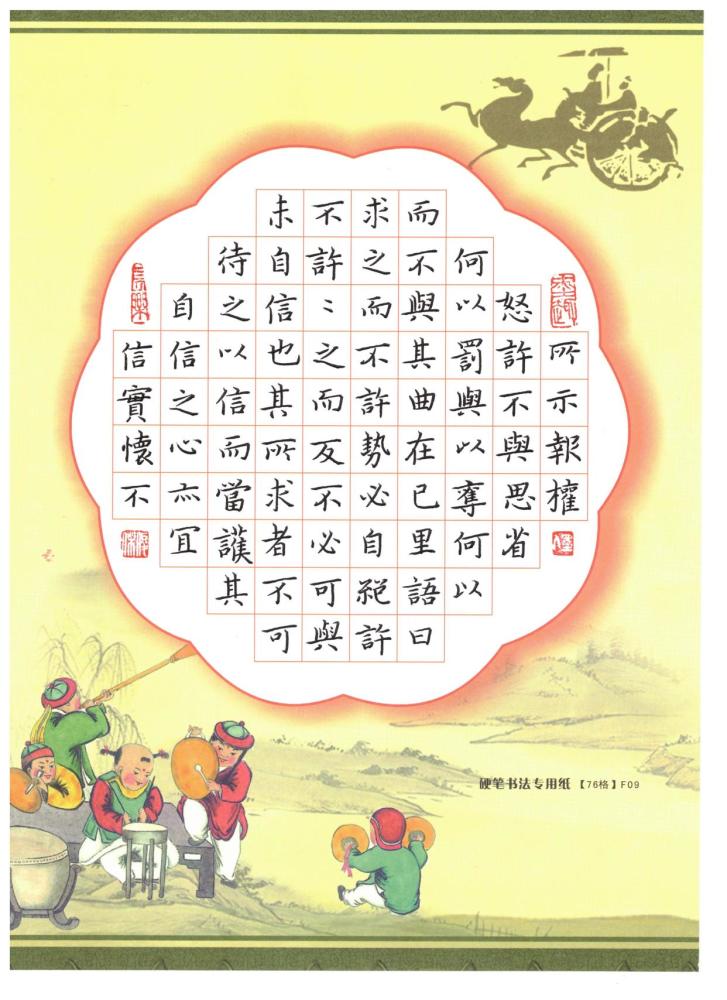 所示報權
怒許不與思省
何以罰與以奪何以
而不與其曲在已里語曰
求之而不許勢必自絕許
不許〻之而反不必可與
未自信也其所求者不可
待之以信而當護其
自信之心亦宜
信實懷不
硬笔书法专用纸【76格】F09